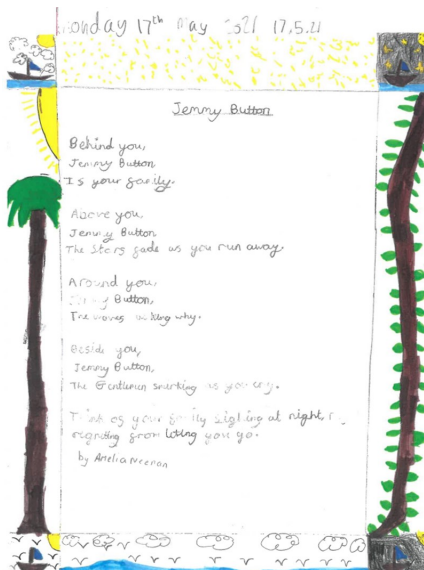 Monday 17th May 2021 17.5.21
Jemmy Button
Behind you,
Jemmy Button
Is your family.
Above you,
Jemmy Button
The Stars fade as you run away.
Around you,
Jemmy Button,
The waves asking why.
Beside you,
Jemmy Button,
The Gentlemen smirking as you cry.
Think of your family sighing at night,
regriting from loting you go.
by Amelia Neenan